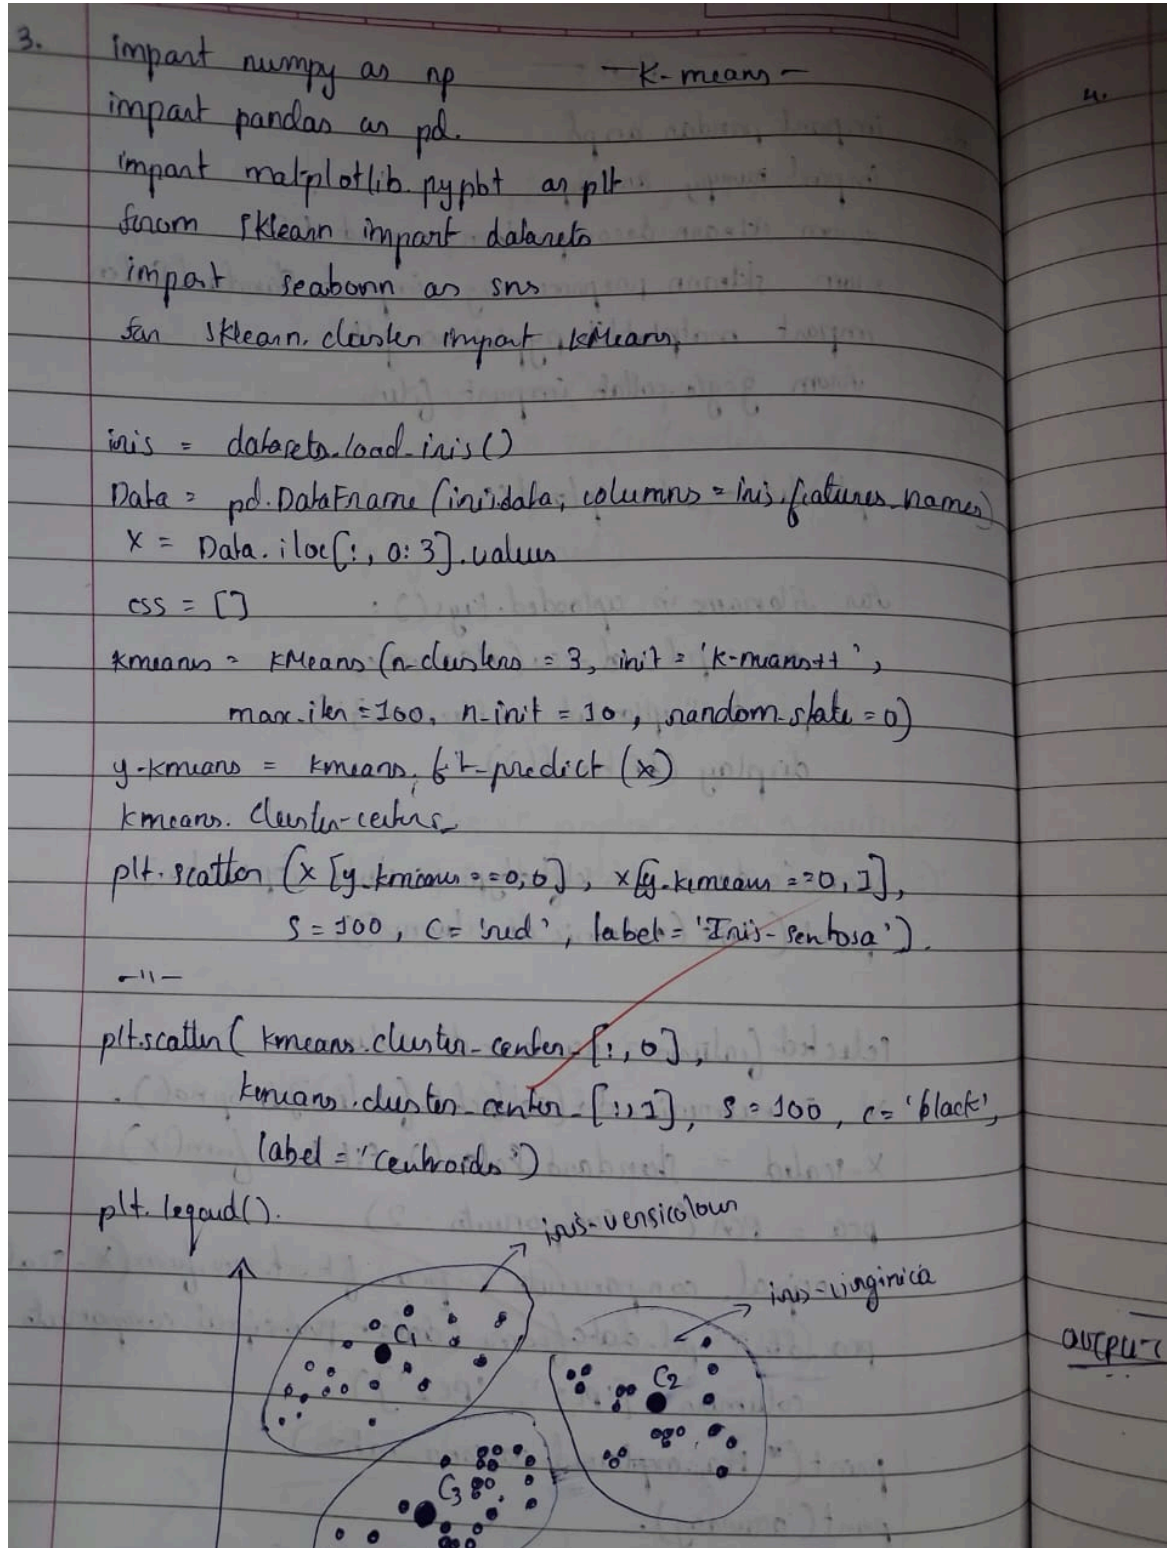 3. import numpy as np — K-means —
import pandas as pd.
import matplotlib.pyplot as plt
from sklearn import datasets
import seaborn as sns
for sklearn.cluster import kMeans
iris = datasets.load_iris()
Data = pd.DataFrame (iris.data, columns = iris.features_names)
X = Data.iloc[:, 0:3].values
css = []
kmeans = KMeans (n-clusters = 3, init = 'k-means++',
max-iter = 100, n-init = 10, random-state = 0)
y-kmeans = kmeans.fit-predict (x)
kmeans.cluster-centers_
plt.scatter (x [y-kmeans ==0,0], x[y-kmeans ==0,1],
s = 100, c= 'red', label = 'Iris-sentosa').
—"—
plt.scatter( kmeans.cluster_center_[:,0],
kmeans.cluster_center_[:,1], s = 100, c= 'black',
label = 'Centroids')
plt.legend().
iris-versicolour
iris-virginica
C1
C2
C3
4.
OUTPUT